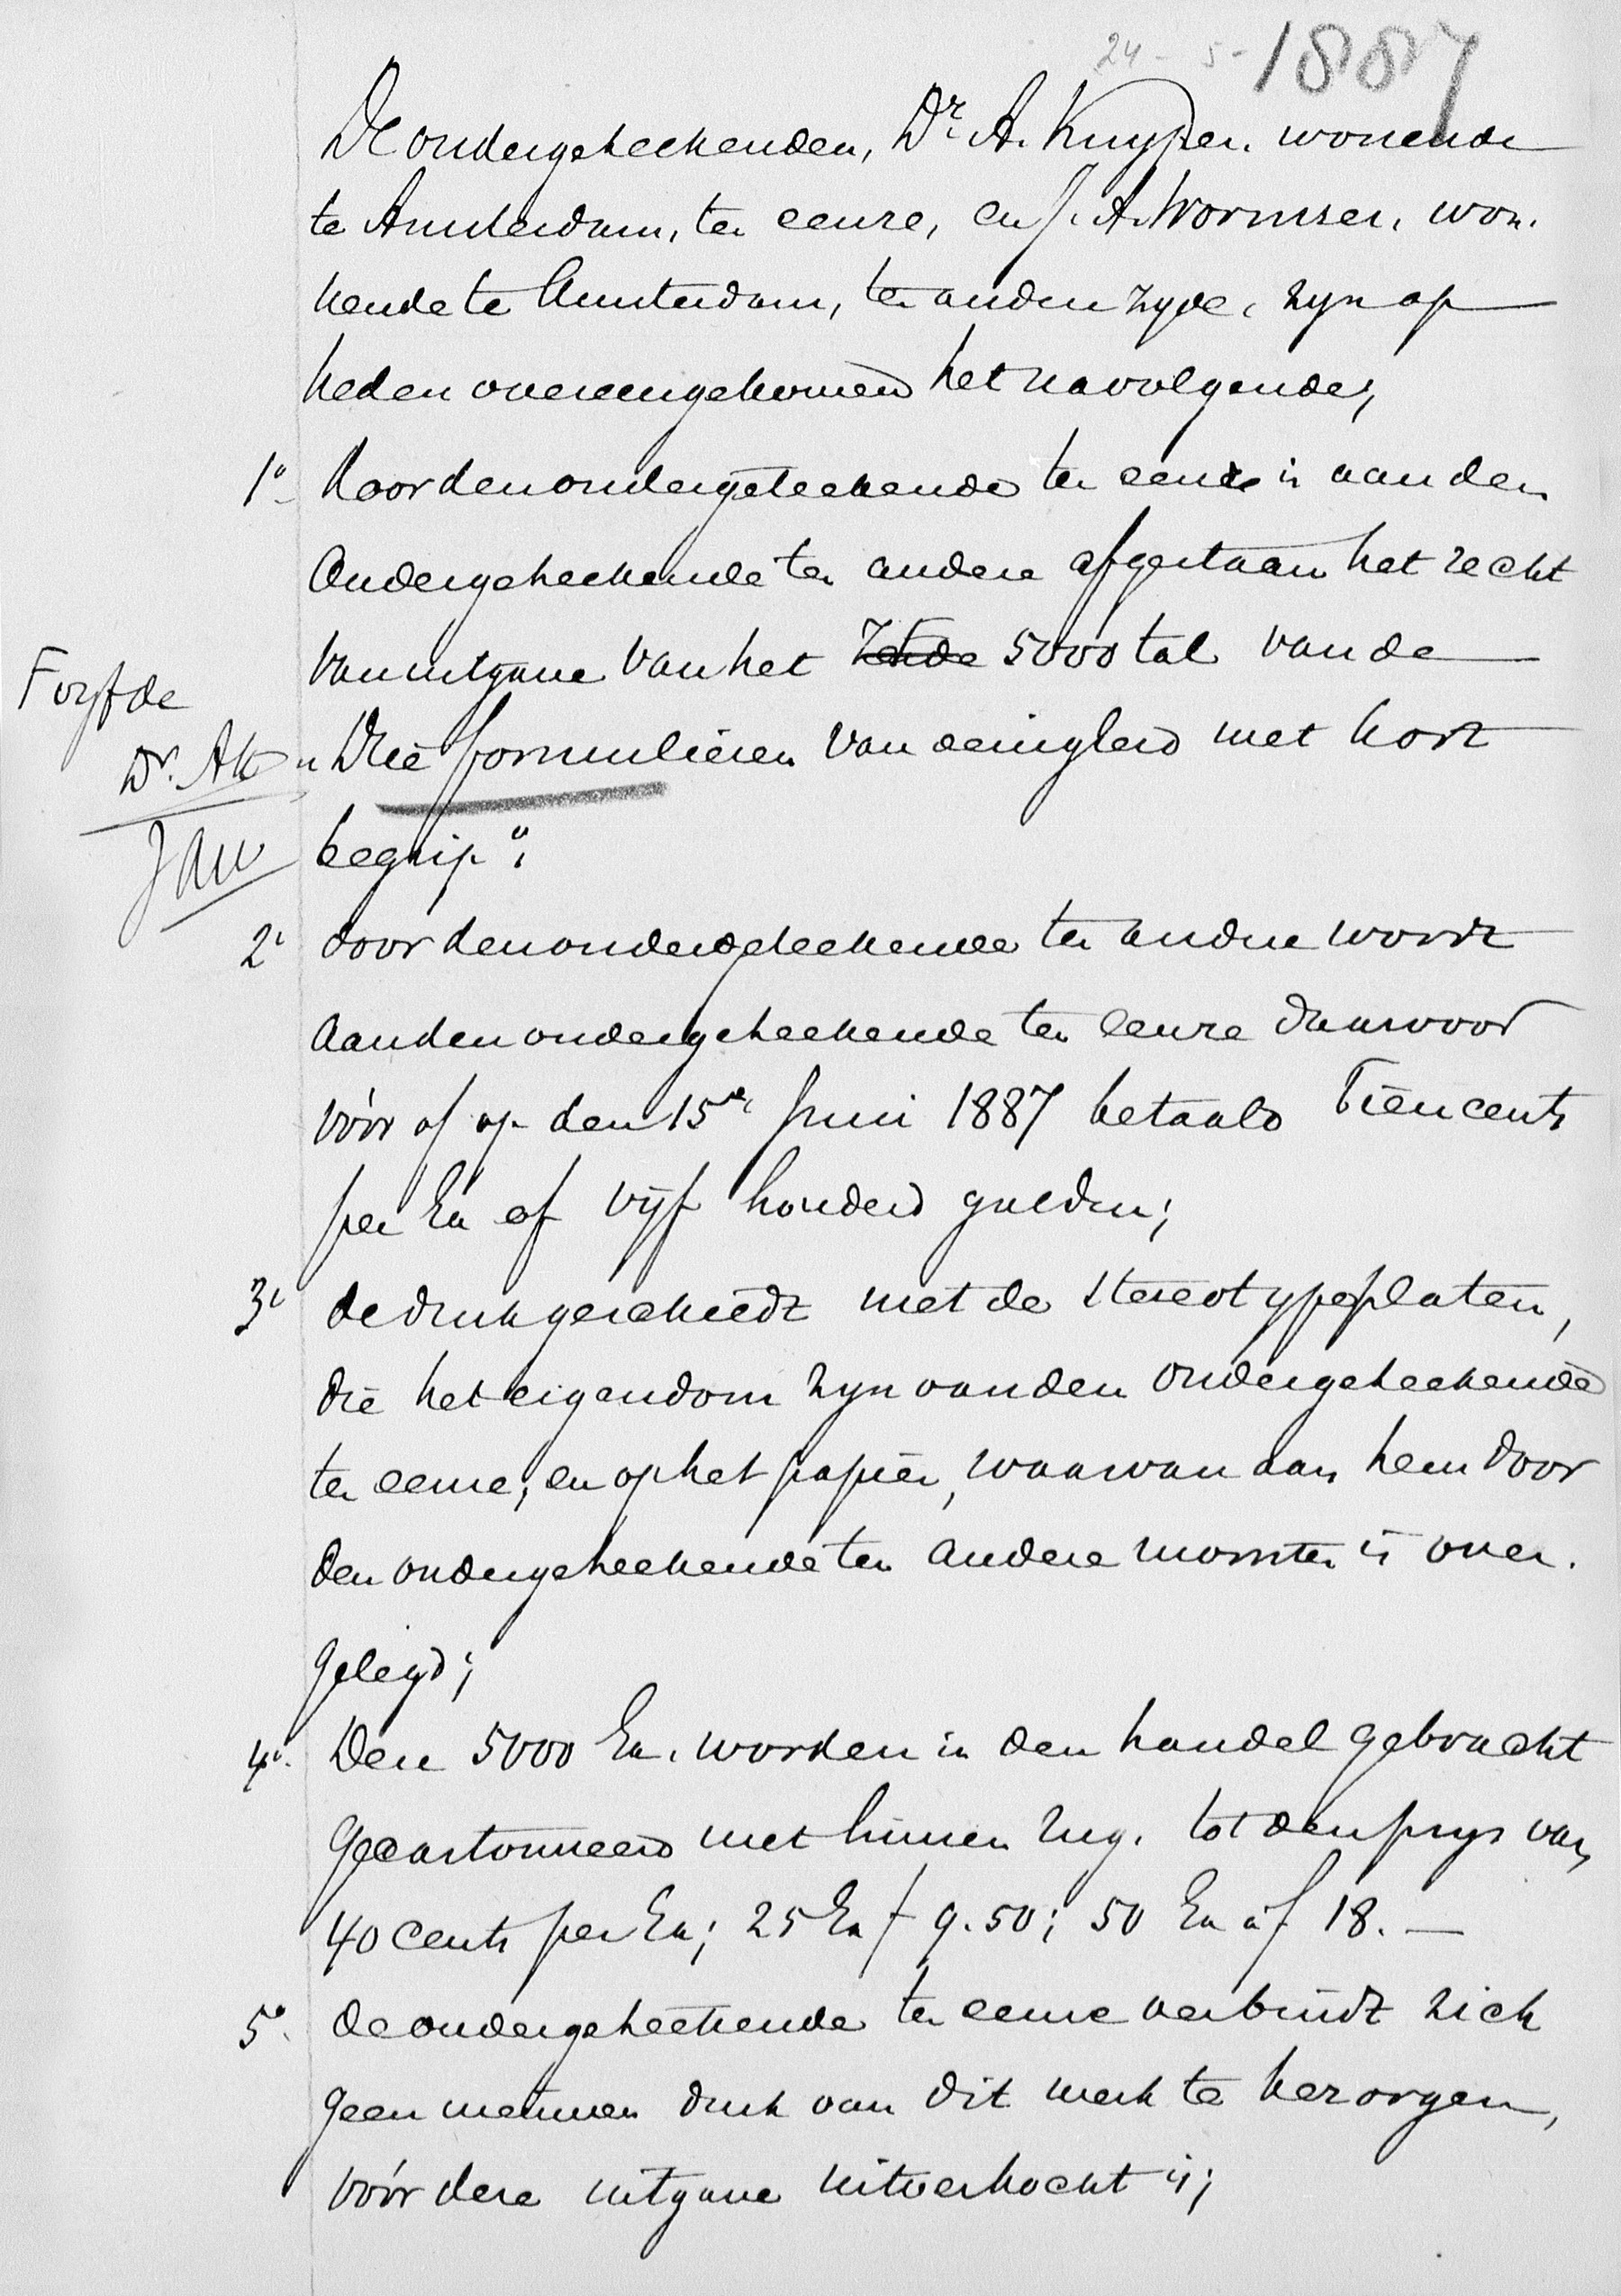 24-5-1887
De ondergeteekenden, Dr. A. Kuyper. wonende
te Amsterdam, ter eenre, en J. A. Wormser, won.
nende te Amsterdam, ter andere zyde, zyn op
heden overeengekomen het navolgende;
1o Door den ondergeteekende ter eenre is aan den
Ondergeteekende ter andere afgestaan het recht
van uitgave van het 5000 tal van de
Fvyfde
Dr. AK
JAW
"Drie formulieren van eenigheid met kort
begrip";
2o door den ondergeteekende ter andere wordt
aan den ondergeteekende ter eenre daarvoor
vóór of op den 15de Juni 1887 betaald Tien cents
per Ex of vijf honderd gulden;
3o de druk geschiedt met de stereotypeplaten,
die het eigendom zyn van den ondergeteekende
ter eenre; en op het papier, waarvan aan hem door
den ondergeteekende ter andere monster is over.
gelegd;
4o. Deze 5000 Ex. worden in den handel gebracht
Gecartonneerd met linnen rug. tot den prys van
40 cents per Ex; 25 Ex f 9.50; 50 Ex à f 18.—
5o. de ondergeteekende ter eenre verbindt zich
geen nieuwen druk van dit werk te bezorgen,
vóór deze uitgave uitverkocht is;